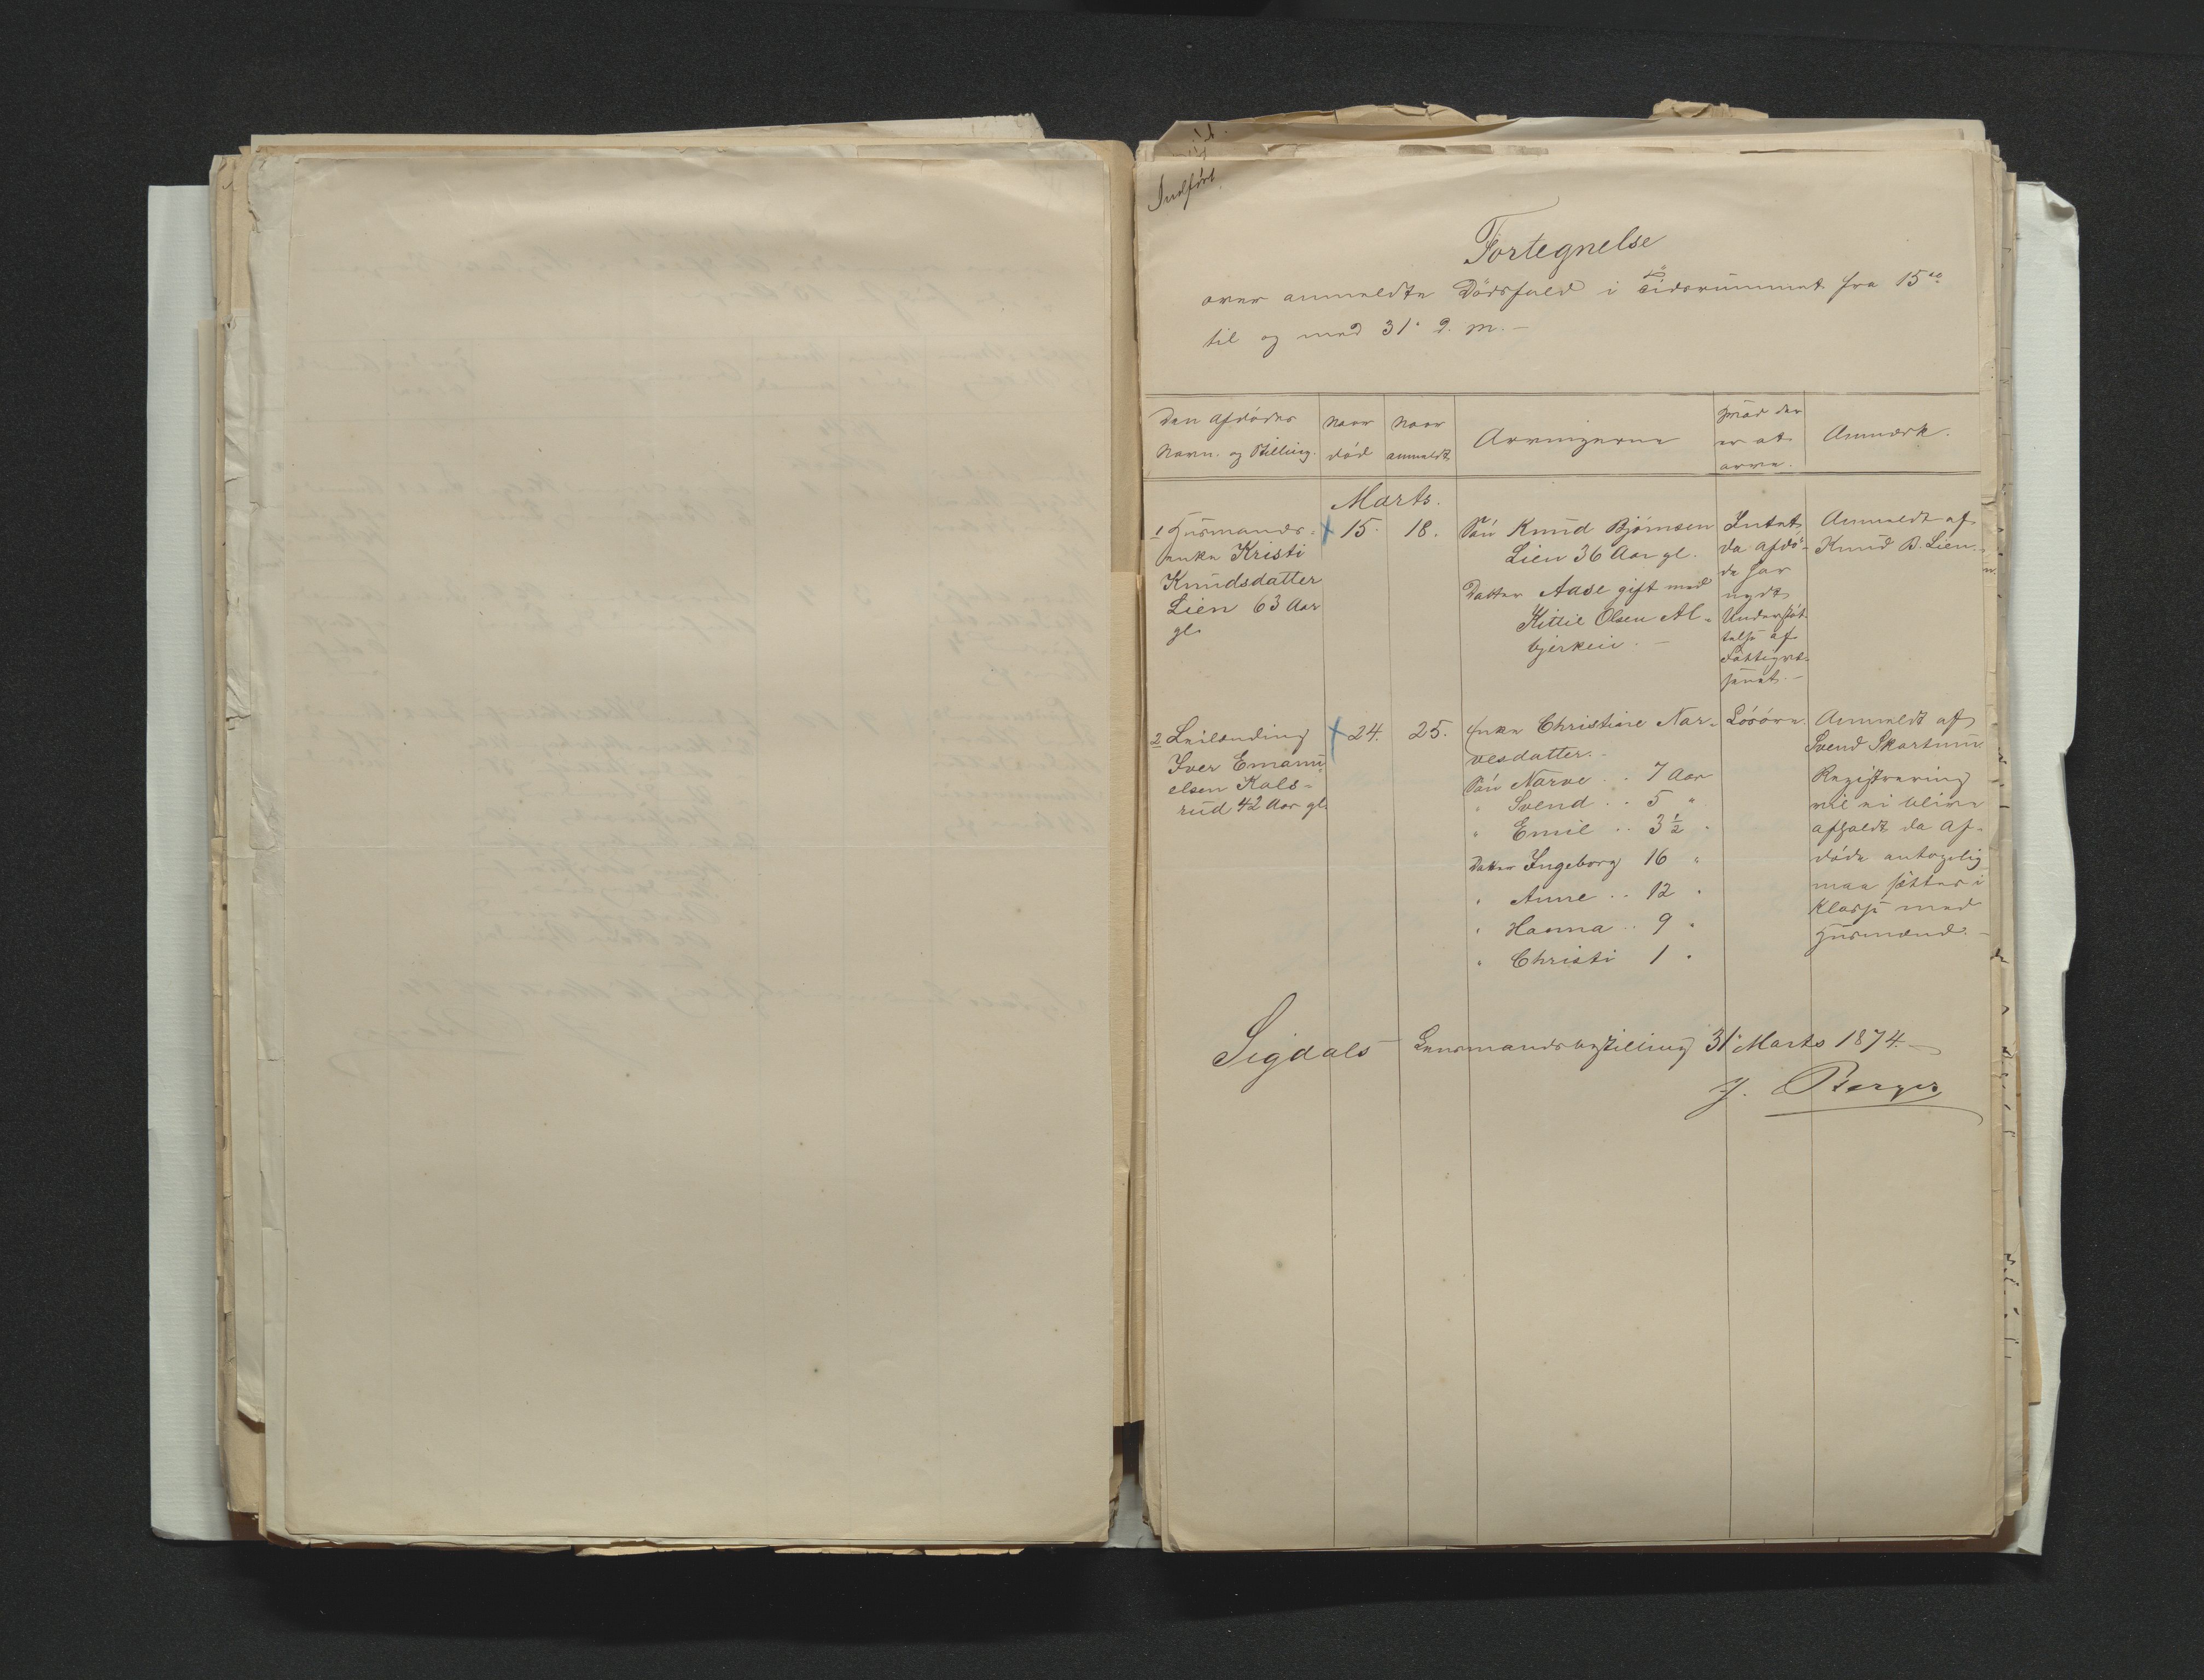 Indført
Fortegnelse
over anmeldte Dödsfald i Tidsrummet fra 15de
til og med 31. d. M. –
Den Afdødes
Navn og Stilling.
Naar
död
Naar
anmeldt
Arvingerne
Hvad der
er at
arve.
Anmærk.
Marts.
1 Husmands-
enke Kristi
Knudsdatter
Lien 63 Aar
gl.
+ 15.
18.
Sön Knud Björnsen
Lien 36 Aar gl.
Datter Aase gift med
Kittil Olsen Al-
bjerkeie. –
Intet
da afdö-
de har
nydt
Understöt-
telse af
Fattigvæ-
senet. –
Anmeldt af
Knud B. Lien.
2 Leilending
Iver Emanu-
elsen Kals-
rud 42 Aar gl.
+ 24.
25.
Enke Christine Nar-
vesdatter. –
Sön Narve .. 7 Aar
" Svend .. 5 "
" Emil .. 3 1/2 "
Datter Ingeborg 16 "
" Anne .. 12 "
" Hanna .. 9 "
" Christi 1 "
Lösöre.
Anmeldt af
Svend Skartum
Registrering
vil ei blive
afholdt da Af-
döde antagelig
maa sættes i
Klasse med
Husmænd. –
Sigdals Lensmandsbestilling 31. Marts 1874. –
J. Berger